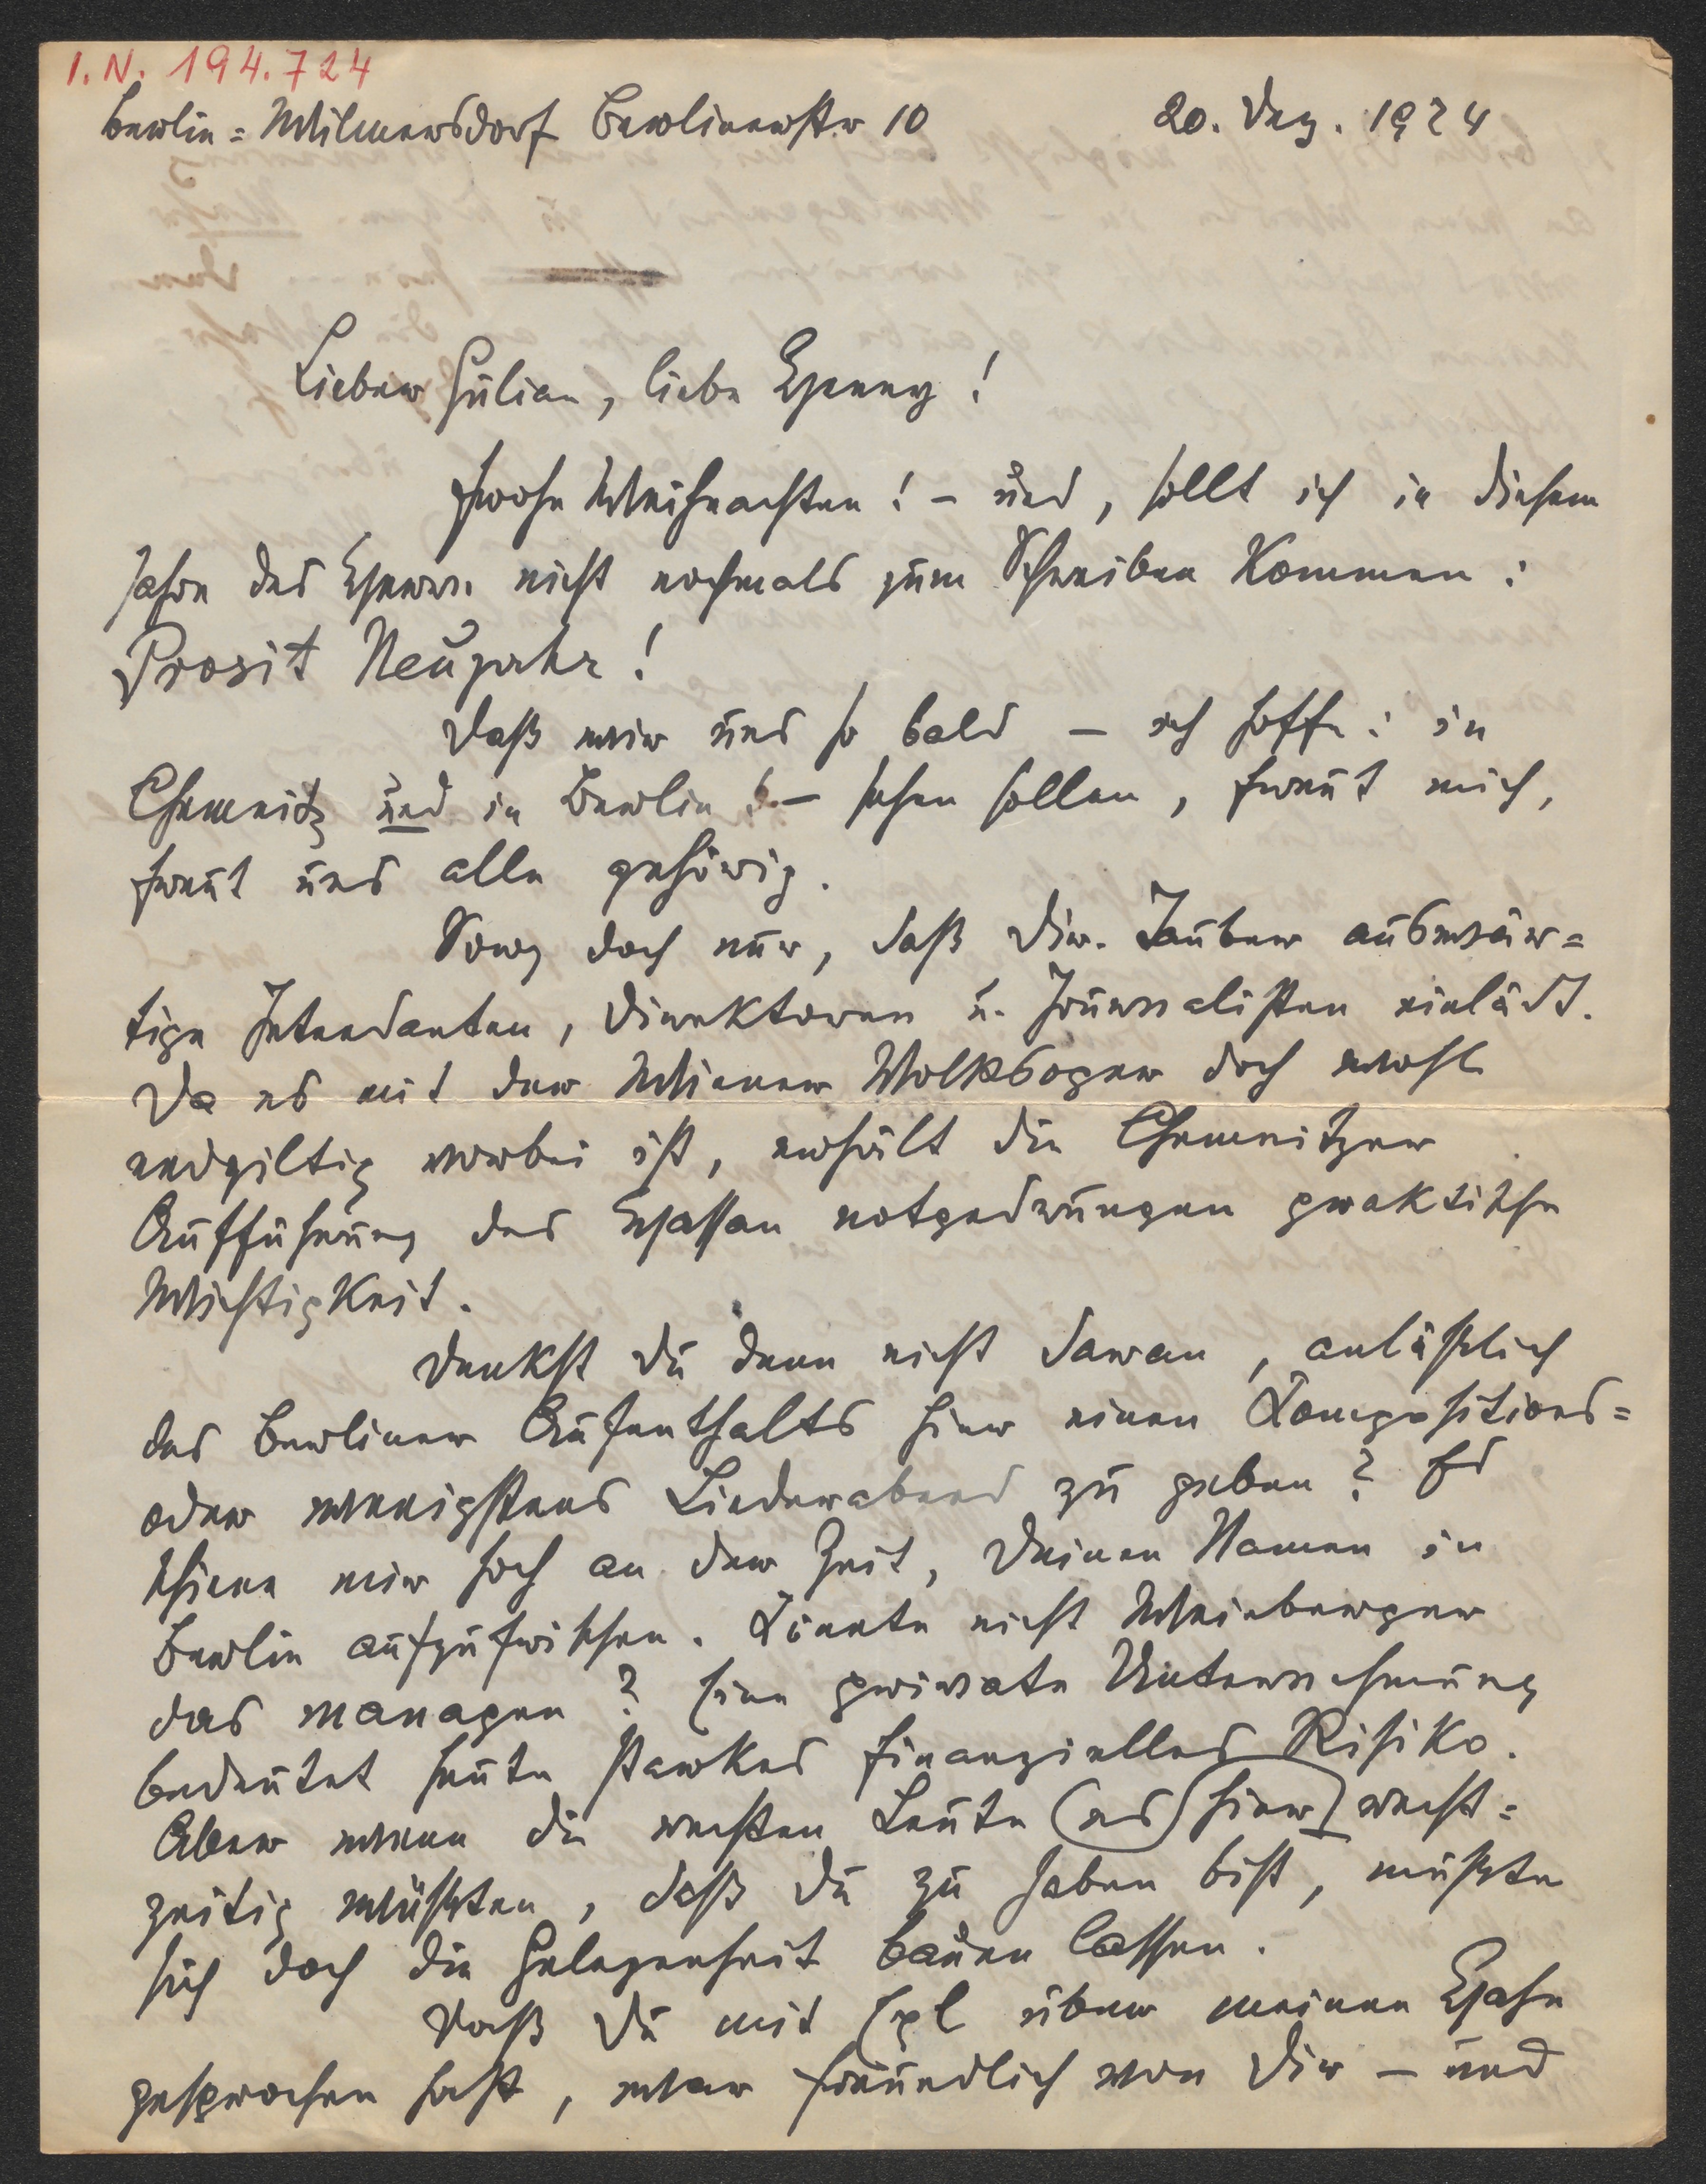 I.N. 194.724
Berlin=Wilmersdorf Berlinerstr 10 20. Dez. 1924
Lieber Julian, liebe Henny!
Frohe Weihnachten! – und, sollt ich in diesem
Jahre des Herrn nicht nochmals zum Schreiben kommen:
Prosit Neujahr!
Daß wir uns so bald – ich hoffe: in
Chemnitz und in Berlin – sehen sollen, freut mich,
freut uns alle gehörig.
Sorg doch nur, daß Dir. Tauber auswär=
tige Intendanten, Direktoren u. Journalisten einlädt.
Da es mit der Wiener Volksoper doch wohl
endgiltig vorbei ist, erhält die Chemnitzer
Aufführung des Hassan notgedrungen praktische
Wichtigkeit.
Denkst Du denn nicht daran, anläßlich
des Berliner Aufenthalts hier einen Kompositions=
oder wenigstens Liederabend zu geben? Es
schiene mir hoch an der Zeit, Deinen Namen in
Berlin aufzufrischen. Könnte nicht Weinberger
das managen? Eine private Unternehmung
bedeutet heute starkes finanzielles Risiko.
Aber wenn die rechten Leute (es) hier recht=
zeitig wüßten, daß Du zu haben bist, müßte
sich doch die Gelegenheit bauen lassen.
Daß Du mit über meinen
gesprochen hast, war freundlich von Dir – und